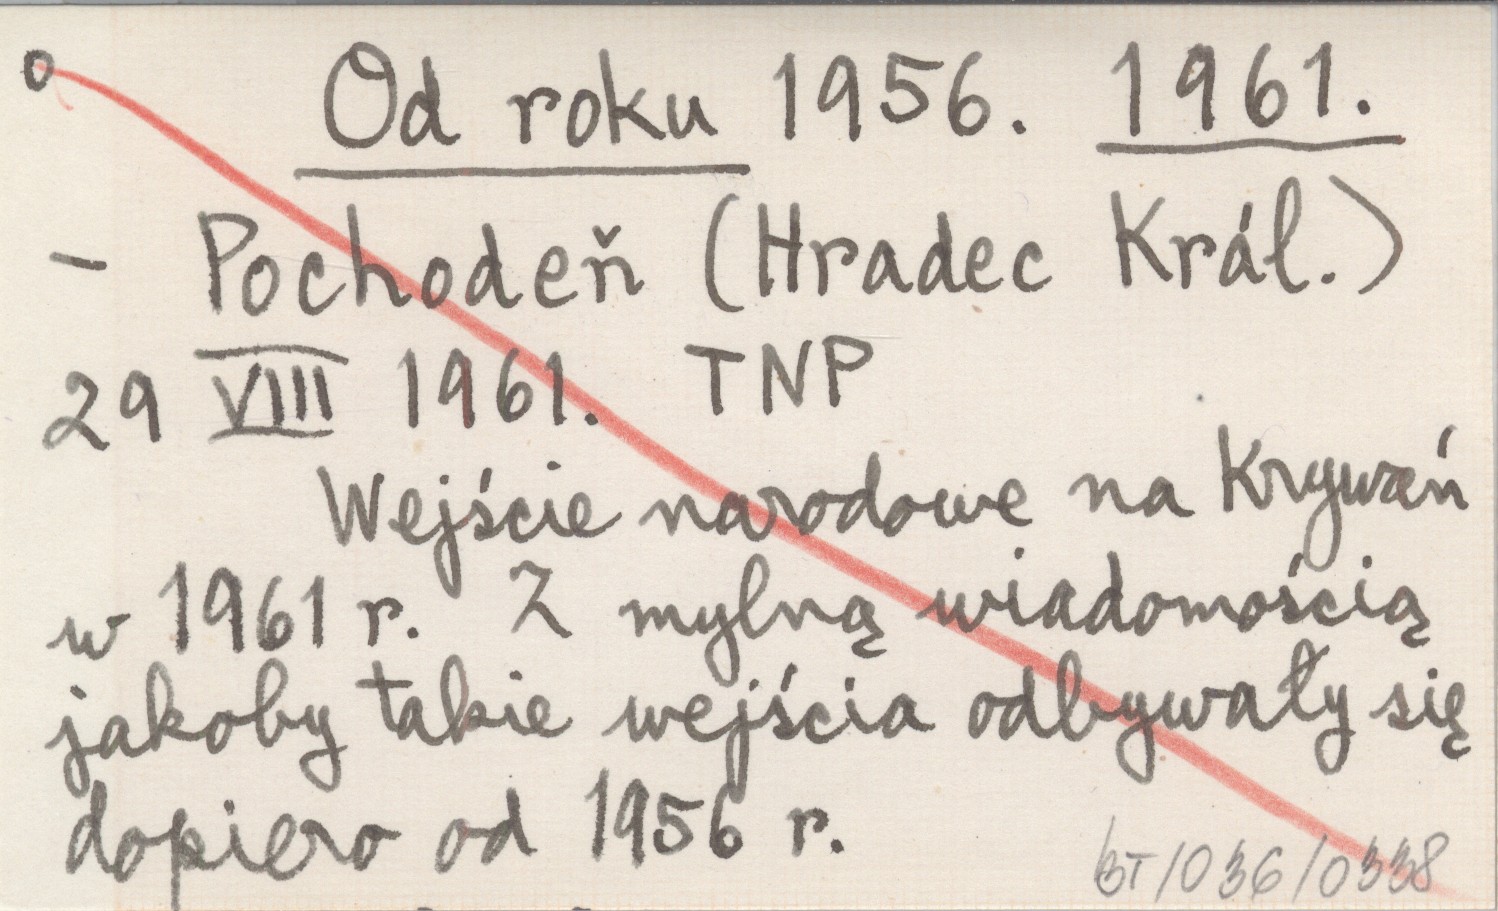 o Od roku 1956. 1961.
- Pochodeň (Hradec Král.)
29 VIII 1961. TNP
Wejście narodowe na Krywań
w 1961 r. Z mylną wiadomością
jakoby takie wejścia odbywały się
dopiero od 1956 r.
BT/036/0338